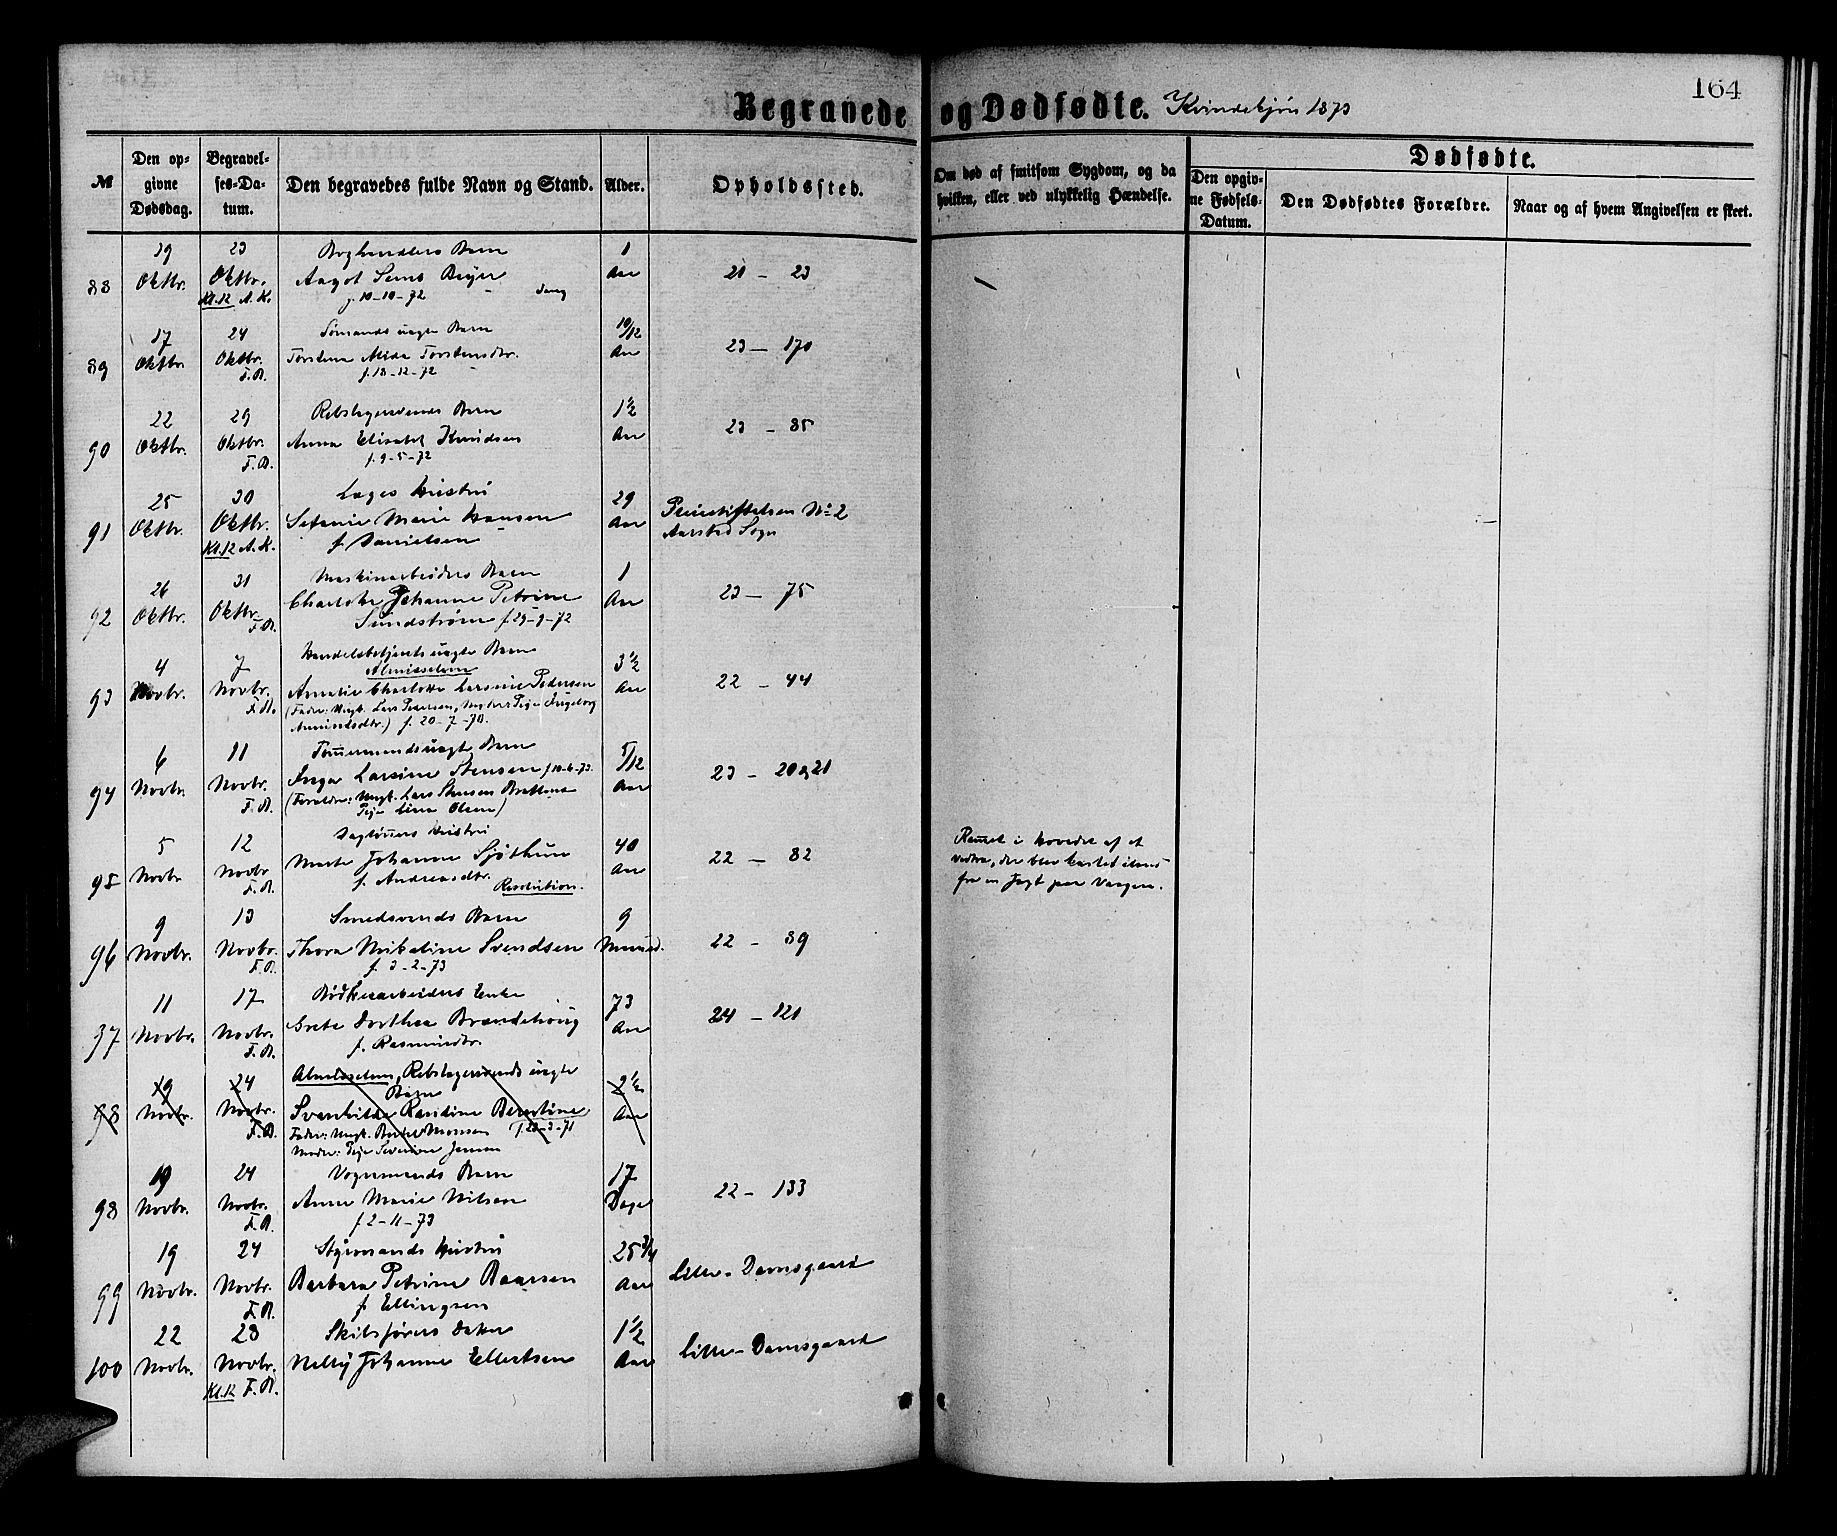 164
Begravede og Dødfødte. Kvindekjøn 1873
Dødfødte.
№
Den opgivne Dødsdag.
Begravelses-Datum.
Den begravedes fulde Navn og Stand.
Alder.
Opholdssted.
Om død af smitsom Sygdom, og da hvilken, eller ved ulykkelig Hændelse.
Den opgivne Fødsels-Datum.
Den Dødfødtes Forældre.
Naar og af hvem Angivelsen er skeet.
19 23 Boghandlers Barn 1
88 Oktbr. Oktbr. Aagot Beyer Aar 21 - 23
Kl. 12 A. K. f. 10-10-72
17 24 Sømands uægte Barn 10/12
89 Oktbr. Oktbr. Torstensdtr. Aar 23 - 170
F. B. f. 18-12-72
22 29 Rebslagersvends Barn 1½
90 Oktbr. Oktbr. Anna Elisabet Knudsen Aar 23 - 85
F. B. f. 9-5-72
25 30 Læges Hustru 29 Pleiestiftelsen № 2
91 Oktbr. Oktbr. Marie Hansen Aar Aarstad Sogn
Kl. 12 A. K. f. Danielsen
26 31 Maskinarbeiders Barn 1
92 Oktbr. Oktbr. Charlotte Johanne Petrine Aar 23 - 75
F. B. Sundstrøm f. 29-9-72
4 7 Handelsbetjents uægte Barn 3½
Almisselem
93 Novbr. Novbr. Amalie Charlotte Larsine Pedersen Aar 22 - 44
F. B. (Fader: Ungk. Lars Pedersen, Moder Pige Ingeborg
Amundsdtr.) f. 20-7-70.
6 11 Tømmermands uægte Barn 5/12
94 Novbr. Novbr. Inga Larsine Stensen f. 10-6-73. Aar 23 - 20 og 21
F. B. (Forældre: Ungk. Lars Stensen
Pige Olsen)
5 12 Dagløners Hustru 40
95 Novbr Novbr Marte Johanne Sjøthun Aar 22 - 82
F. B. f. Andreasdtr. Resolution.
Ramet i Hovedet af et
Vedtræ, der blev kasted
fra en Jagt paa Vaagen.
9 13 Smedsvends Barn 9
96 Novbr. Novbr. Thora Mikaline Svendsen Maaned. 22 - 89
F. B. f. 3-2-73
11 17 Bødkerarbeiders Enke 73
97 Novbr. Novbr. Grete Dorthea Brændehaug Aar 24 - 121
F. B. f. Rasmusdtr.
19 24 Almisselem, Rebslagersvends uægte 2½
Barn
98 Novbr. Novbr. Svanhilde Randine Berntine Aar
F. B. Fader: Ungk. Monsen f. 23-3-71
Moder: Pige Severine Jensen
19 24 Vognmands Barn 17
98 Novbr. Novbr. Anne Marie Nilsen Dage 22 - 133
F. B. f. 2-11-73
19 24 Styrmands Hustru 25¾
99 Novbr. Novbr. Barbara Petrine Baarsen Aar Lille-Damsgaard
F. B. f. Ellingsen
22 28 Skibsførers Datter 1½
100 Novbr. Novbr. Nelly Johanne Ellertsen Aar Lille-Damsgaard
Kl. 12 F. B.